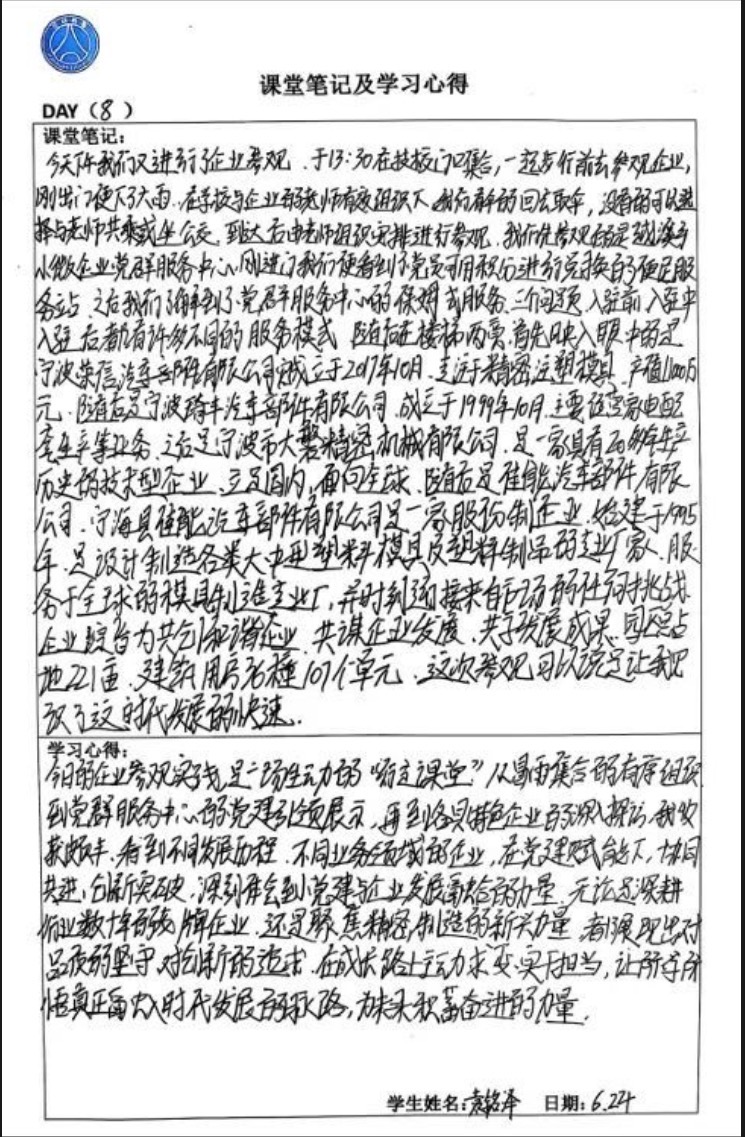 课堂笔记及学习心得
DAY（8）
课堂笔记：
今天下午我们又进行了企业参观．于13:30在技校门口集合，一起步行前去参观企业，
刚出门便下了大雨．在学校与企业的老师有效组织下 我们有伞的回去取伞，没有的可以选
择与老师共乘或坐公交．到达后由老师组织安排进行参观．我们先参观的是越溪乡
小微企业党群服务中心．刚进门我们便看到了党员可用积分进行兑换的便民服
务站．之后我们了解到了党群服务中心的保姆式服务．三个问题．入驻前 入驻中
入驻后都有许多不同的服务模式．随后进楼梯两旁．首先映入眼中的是
宁波荣信汽车部件有限公司．成立于2017年10月．专注于精密注塑模具．产值1100万
元．随后是宁波琦丰汽车部件有限公司．成立于1999年10月．主要经营家电配
套生产等业务．之后是宁波市大磐精密机械有限公司．是一家具有多年生产
历史的技术型企业．立足国内．面向全球．随后是佳能汽车部件有限
公司．宁海县佳能汽车部件有限公司是一家股份制企业．始建于1995
年．是设计制造各类大中型塑料模具及塑料制品的专业厂家．服
务于全球的模具制造专业厂，并时刻迎接来自市场的任何挑战．
企业综合力共创和谐企业．共谋企业发展．共享发展成果．园区总占
地221亩．建筑用房36幢107个单元．这次参观可以说是让我见
识了这时代发展的快速．
学习心得：
今日的企业参观实践是一场生动的“行走课堂”从冒雨集合的有序组织
到党群服务中心的党建引领展示，再到各具特色企业的深入探访．我收
获颇丰．看到不同发展历程．不同业务领域的企业，在党建赋能下，协同
共进．创新突破．深刻体会到党建与企业发展融合的力量．无论是深耕
行业数十年的老牌企业．还是聚焦精密制造的新兴力量．都展现出对
品质的坚守．对创新的追求．在成长路上主动求变．实干担当，让所学所
悟真正融入时代发展的脉络，为未来积蓄奋进的力量．
学生姓名：袁铭泽 日期：6.24